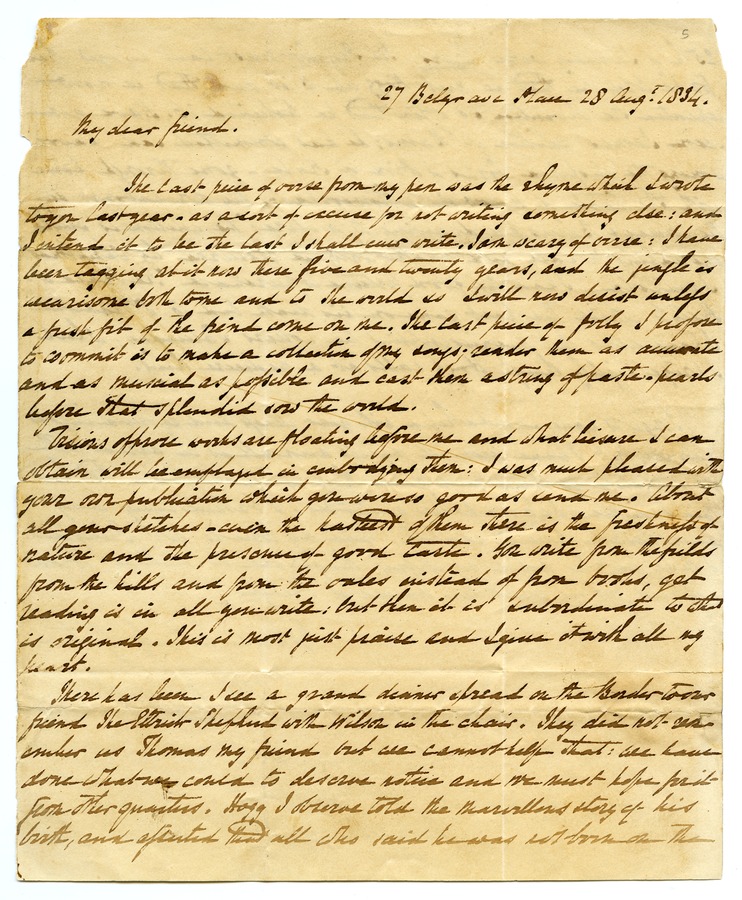 5
27 Belgrave Place 28 Augt. 1834.
My dear friend.
The last piece of verse from my pen was the rhyme which I wrote
to you last year - as a sort of excuse for not writing something else: and
I intend it to be the last I shall ever write. I am weary of verse: I have
been tagging at it now these five and twenty years, and the jingle is
wearisome both to me and to the world so I will now desist unless
a fresh fit of the fiend come on me. The last piece of folly I propose
to commit is to make a collection of my songs; render them as accurate
and as musical as possible and cast them a string of paste-pearls
before that splendid sow the world.
Visions of prose works are floating before me and what leisure I can
obtain will be employed in embodying them: I was much pleased with
your own publication which you were so good as send me. About
all your sketches - even the hastiest of them there is the freshness of
nature and the presence of good taste. You write from the fields
from the hills and from the vales instead of from books, yet
reading is in all you write: but then it is subordinate to that
is original. This is most just praise and I give it with all my
heart.
There has been I see a grand dinner spread on the Border to our
friend The Ettrick Shepherd with Wilson in the chair. They did not rem-
ember us Thomas my friend but we cannot help that: we have
done what we could to deserve notice and we must hope for it
from other quarters. Hogg I observe told the marvellous story of his
birth, and asserted that all who said he was not born on the